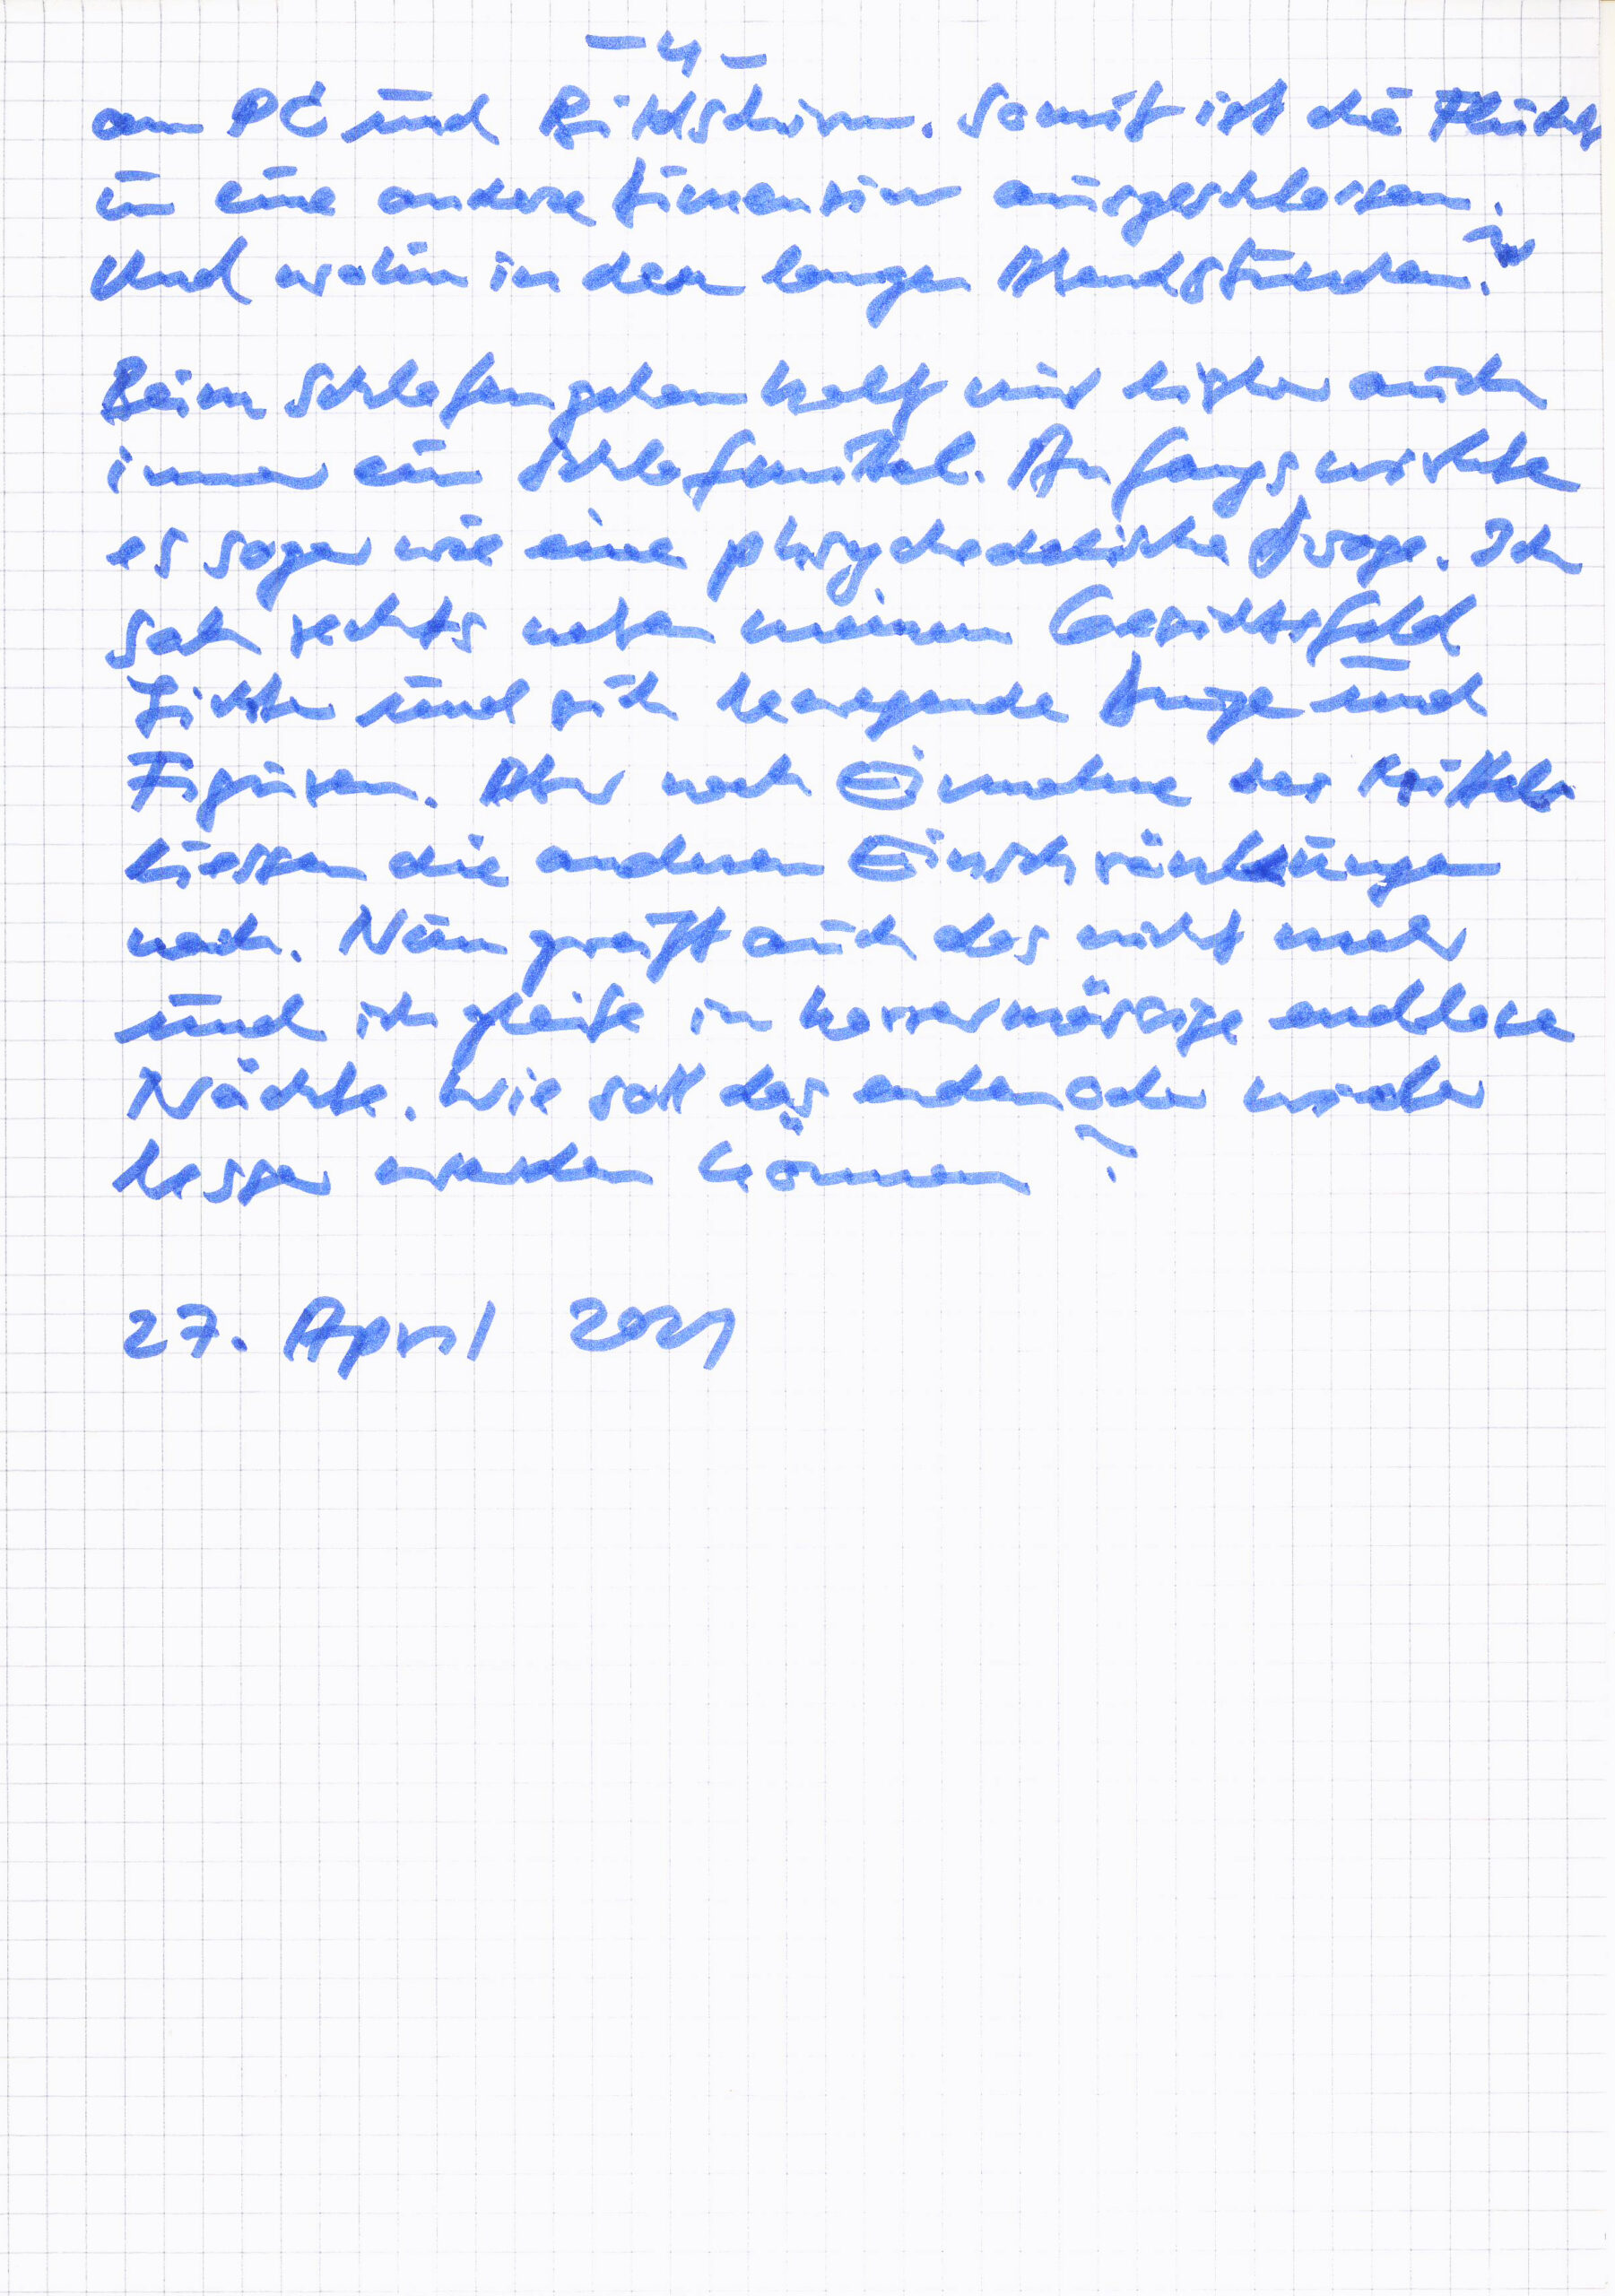 - 4 -
am PC und Bildschirm. Somit ist die Flucht
in eine andere Dimension ausgeschlossen.
Und wohin in den langen Abendstunden?
Beim Schlafengehen half mir bisher auch
immer ein Schlafmittel. Anfangs wirkte
es sogar wie eine phsychedelische Droge. Ich
sah rechts neben meinem Gesichtsfeld
Lichter und sich bewegende Dinge und
Figuren. Aber nach Einnahme des Mittels
liessen die anderen Einschränkungen
nach. Nun greift auch das nicht mehr
und ich gleite in horrormässige endlose
Nächte. Wie soll das enden oder wieder
besser werden können?
27. April 2021